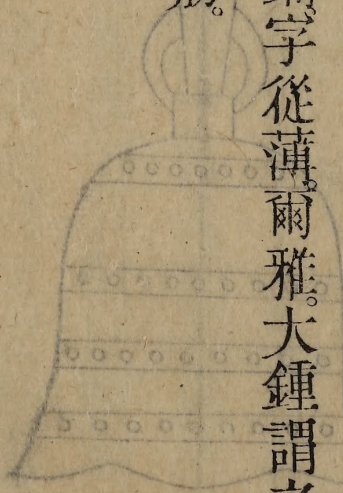 字從薄。爾雅。大鍾謂